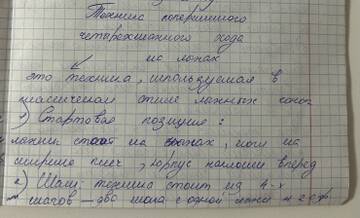 Техника попеременного
четырехшажного хода
на лыжах
это техника, используемая в
классическом стиле лыжных гонок
1) Стартовая позиция:
лыжник стоит на лыжах, ноги на
ширине плеч, корпус наклонен вперед
2) Шаги: техника стоит из 4-х
шагов — два шага с одной